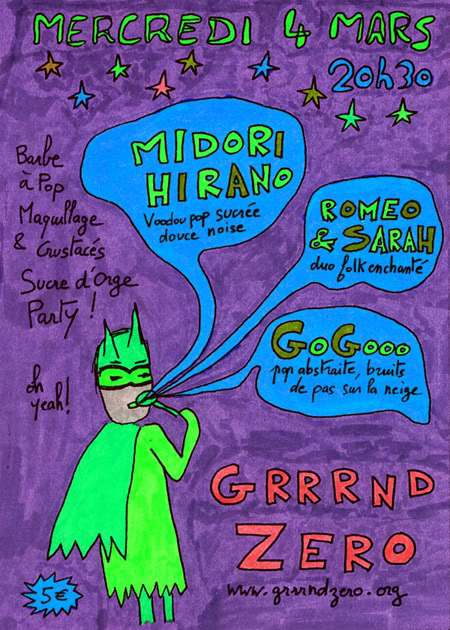 MERCREDI 4 MARS
20h30
MIDORI
HIRANO
Voodou pop sucrée
douce noise
ROMEO
& SARAH
duo folk enchanté
GoGooo
pop abstraite, bruits
de pas sur la neige
Barbe
à Pop
Maquillage
& Crustacés
Sucre d'Orge
Party !
oh
yeah!
GRRRND
ZERO
www.grrrndzero.org
5€